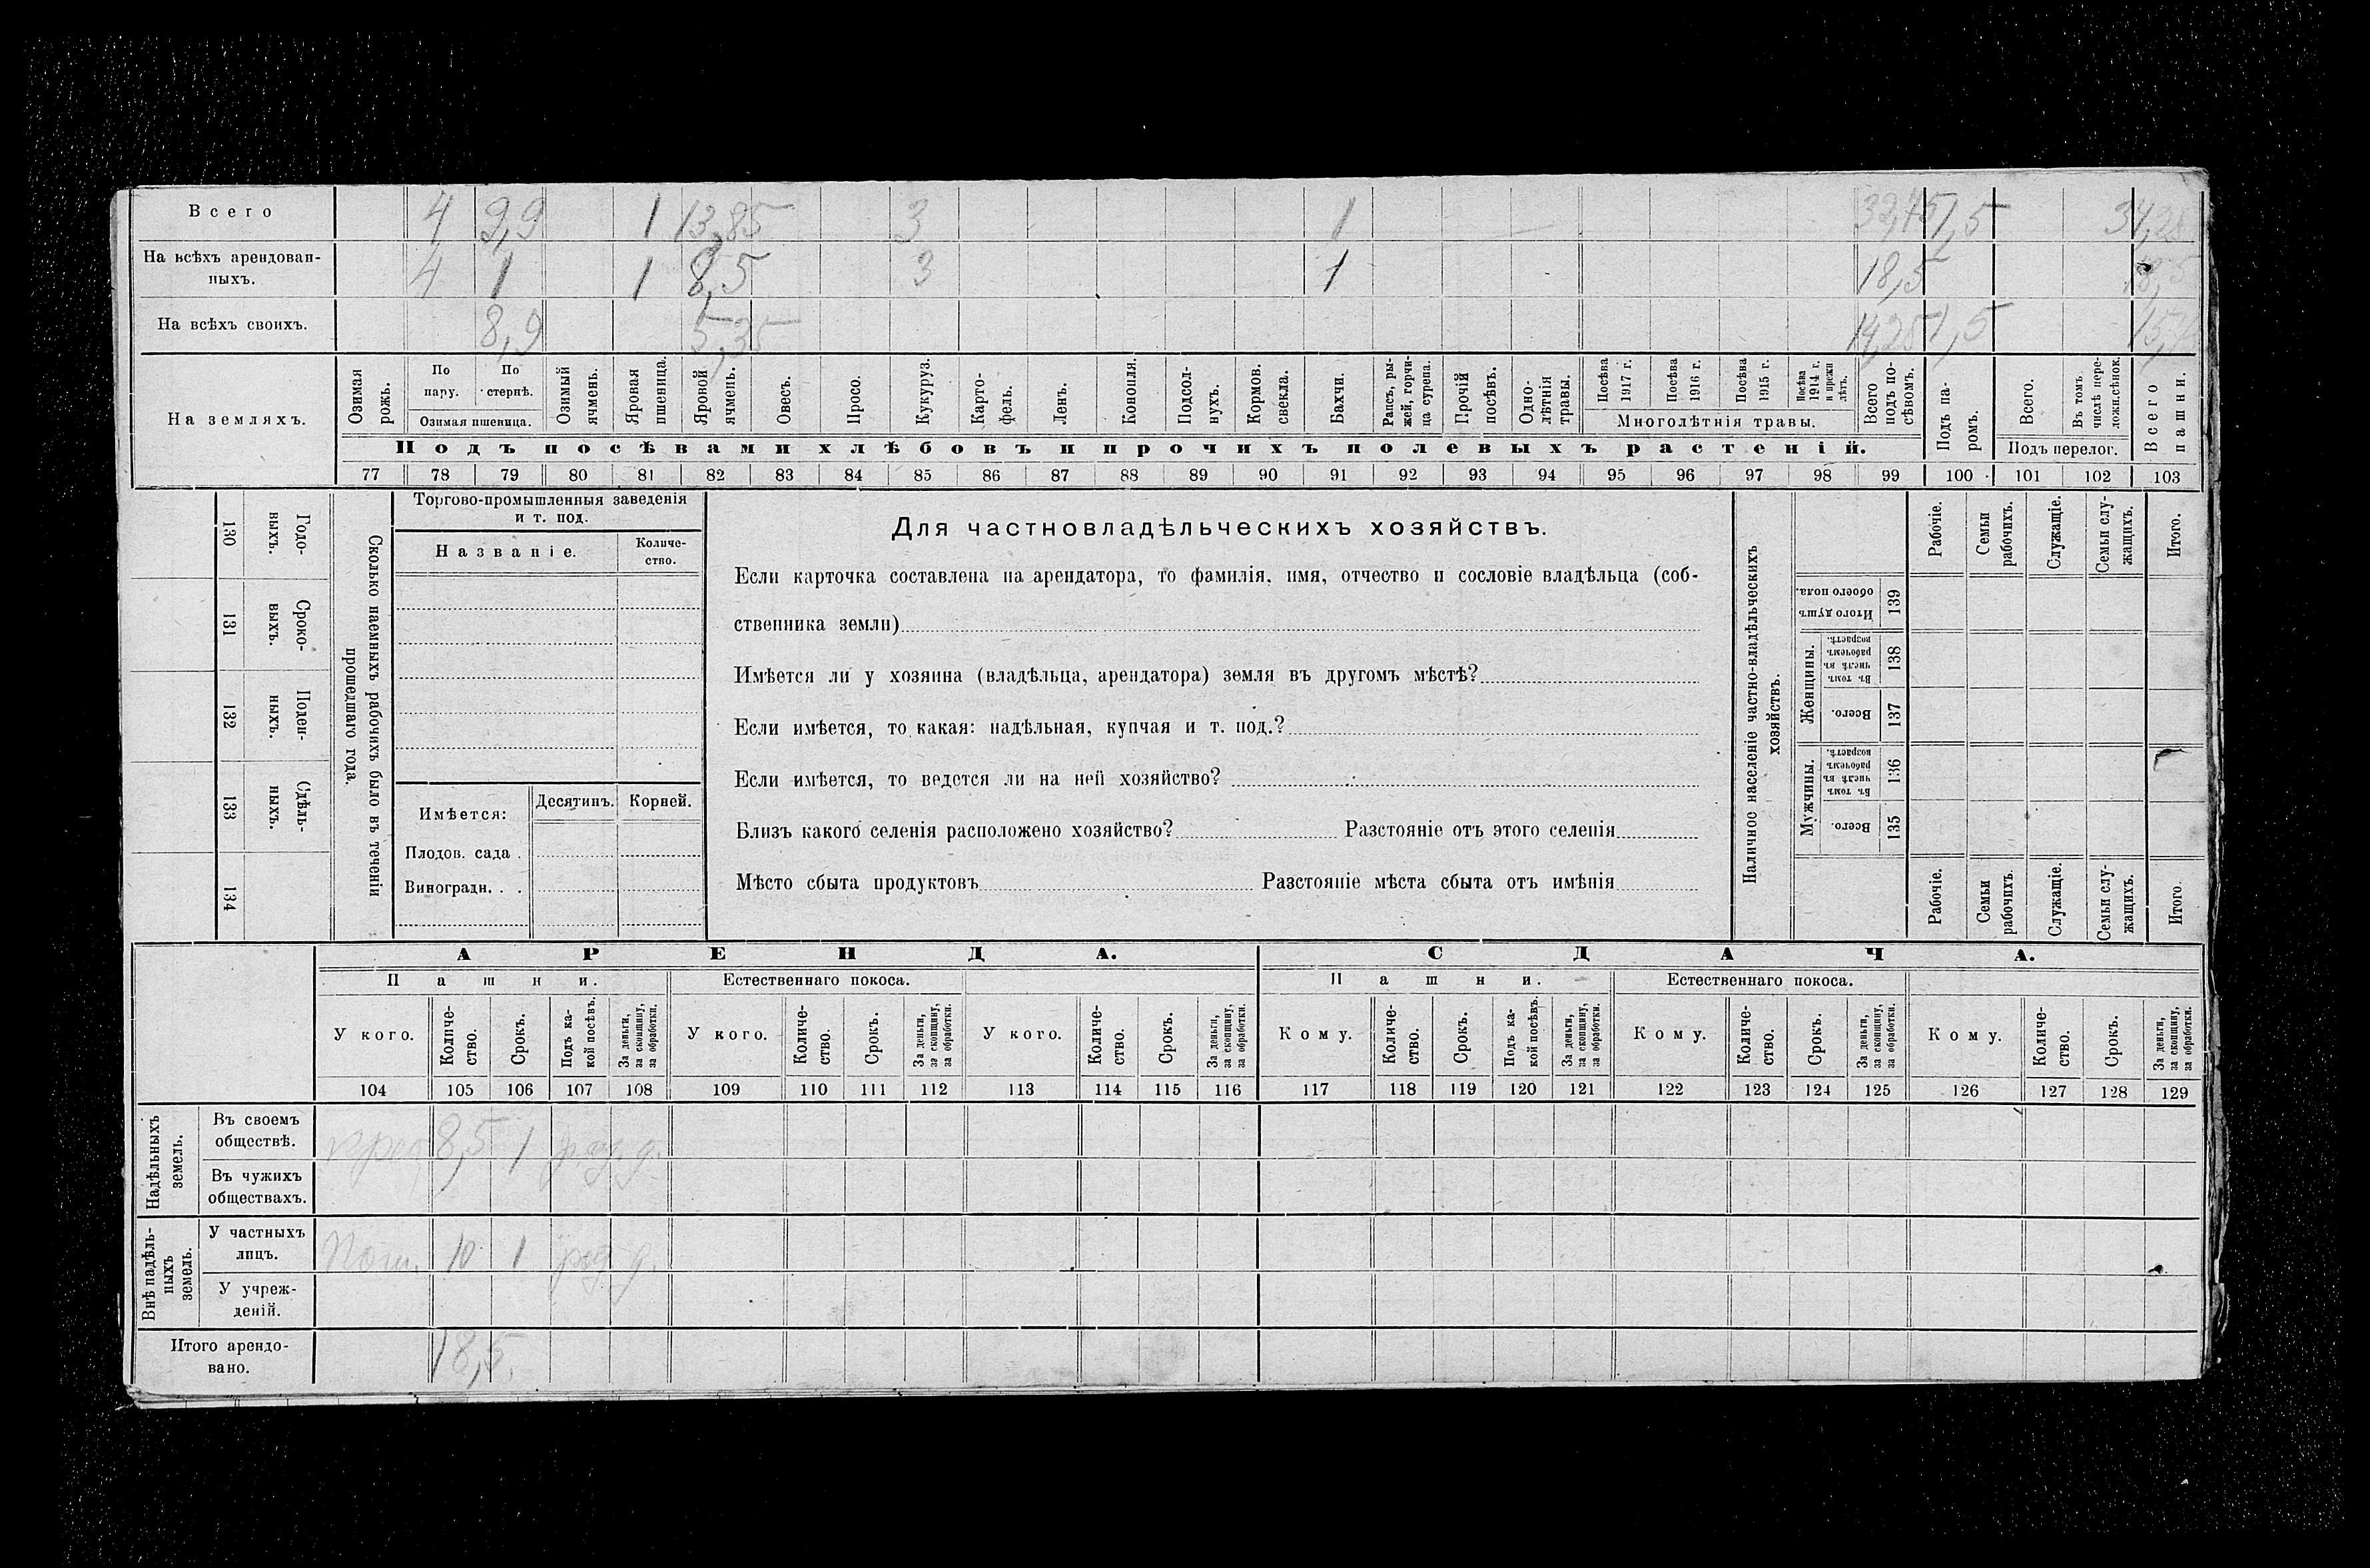 Всего 4 9,9 1 13,85 3 1 32,75 1,5 34,25
На всѣхъ арендован-
ныхъ. 4 1 1 8,5 3 1 18,5 18,5
На всѣхъ своихъ. 8,9 5,35 14,25 1,5 15,75
На земляхъ.
Озимая рожь.
По пару.
По стернѣ.
Озимая пшеница.
Озимый ячмень.
Яровая пшеница.
Яровой ячмень.
Овесъ.
Просо.
Кукуруз.
Карто-
фель.
Ленъ.
Конопля.
Подсол-
нухъ.
Кормов.
свекла.
Бахчи.
Рапсъ, ры-
жей, горчи-
ца сурепа.
Прочій
посѣвъ.
Одно-
лѣтнія
травы.
Посѣва
1917 г.
Посѣва
1916 г.
Посѣва
1915 г.
Посѣва
1914 г.
и прежн
лѣтъ.
Многолѣтнія травы.
Всего
подъ по-
сѣвомъ.
Подъ па-
ромъ.
Всего.
Въ томъ
числѣ пере-
ложн.сѣнок.
Подъ перелог.
Всего
пашни.
Подъ посѣвами хлѣбовъ и прочихъ полевыхъ растеній.
77 78 79 80 81 82 83 84 85 86 87 88 89 90 91 92 93 94 95 96 97 98 99 100 101 102 103
130 Годо-
выхъ.
131 Сроко-
выхъ.
132 Поден-
ныхъ.
133 Сдѣль-
ныхъ.
134
Сколько наемныхъ рабочихъ было въ теченіи
прошедшаго года.
Торгово-промышленныя заведенія
и т. под.
Названіе.
Количе-
ство.
Имѣется: Десятинъ. Корней.
Плодов. сада .
Виноградн. . .
Для частновладѣльческихъ хозяйствъ.
Если карточка составлена на арендатора, то фамилія, имя, отчество и сословіе владѣльца (соб-
ственника земли)
Имѣется ли у хозяина (владѣльца, арендатора) земля въ другомъ мѣстѣ?
Если имѣется, то какая: надѣльная, купчая и т. под.?
Если имѣется, то ведется ли на ней хозяйство?
Близъ какого селенія расположено хозяйство? Разстояніе отъ этого селенія
Мѣсто сбыта продуктовъ Разстояніе мѣста сбыта отъ имѣнія
Наличное населеніе частно-владѣльческихъ
хозяйствъ.
Рабочіе.
Семьи
рабочихъ.
Служащіе.
Семьи слу-
жащихъ.
Итого.
Итого душъ
обоего пола.
139
Женщины.
Въ томъ
числѣ въ
рабочемъ
возрастѣ.
138
Всего.
137
Мужчины.
Въ томъ
числѣ въ
рабочемъ
возрастѣ.
136
Всего.
135
Рабочіе.
Семьи
рабочихъ.
Служащіе.
Семьи слу-
жащихъ.
Итого.
АРЕНДА. СДАЧА.
Пашни. Естественнаго покоса. Пашни. Естественнаго покоса.
У кого.
Количе-
ство.
Срокъ.
Подъ ка-
кой посѣвъ.
За деньги,
за скопщину,
за обработки.
У кого.
Количе-
ство.
Срокъ.
За деньги,
за скопщину,
за обработки.
У кого.
Количе-
ство.
Срокъ.
За деньги,
за скопщину,
за обработки.
Кому.
Количе-
ство.
Срокъ.
Подъ ка-
кой посѣвъ.
За деньги,
за скопщину,
за обработки.
Кому.
Количе-
ство.
Срокъ.
За деньги,
за скопщину,
за обработки.
Кому.
Количе-
ство.
Срокъ.
За деньги,
за скопщину,
за обработки.
104 105 106 107 108 109 110 111 112 113 114 115 116 117 118 119 120 121 122 123 124 125 126 127 128 129
Надѣльныхъ
земель.
Въ своемъ
обществѣ. 8,5 1 д.
Въ чужихъ
обществахъ.
Внѣ надѣль-
ныхъ
земель.
У частныхъ
лицъ. Пом. 10 1 д.
У учреж-
деній.
Итого арендо-
вано. 18,5.